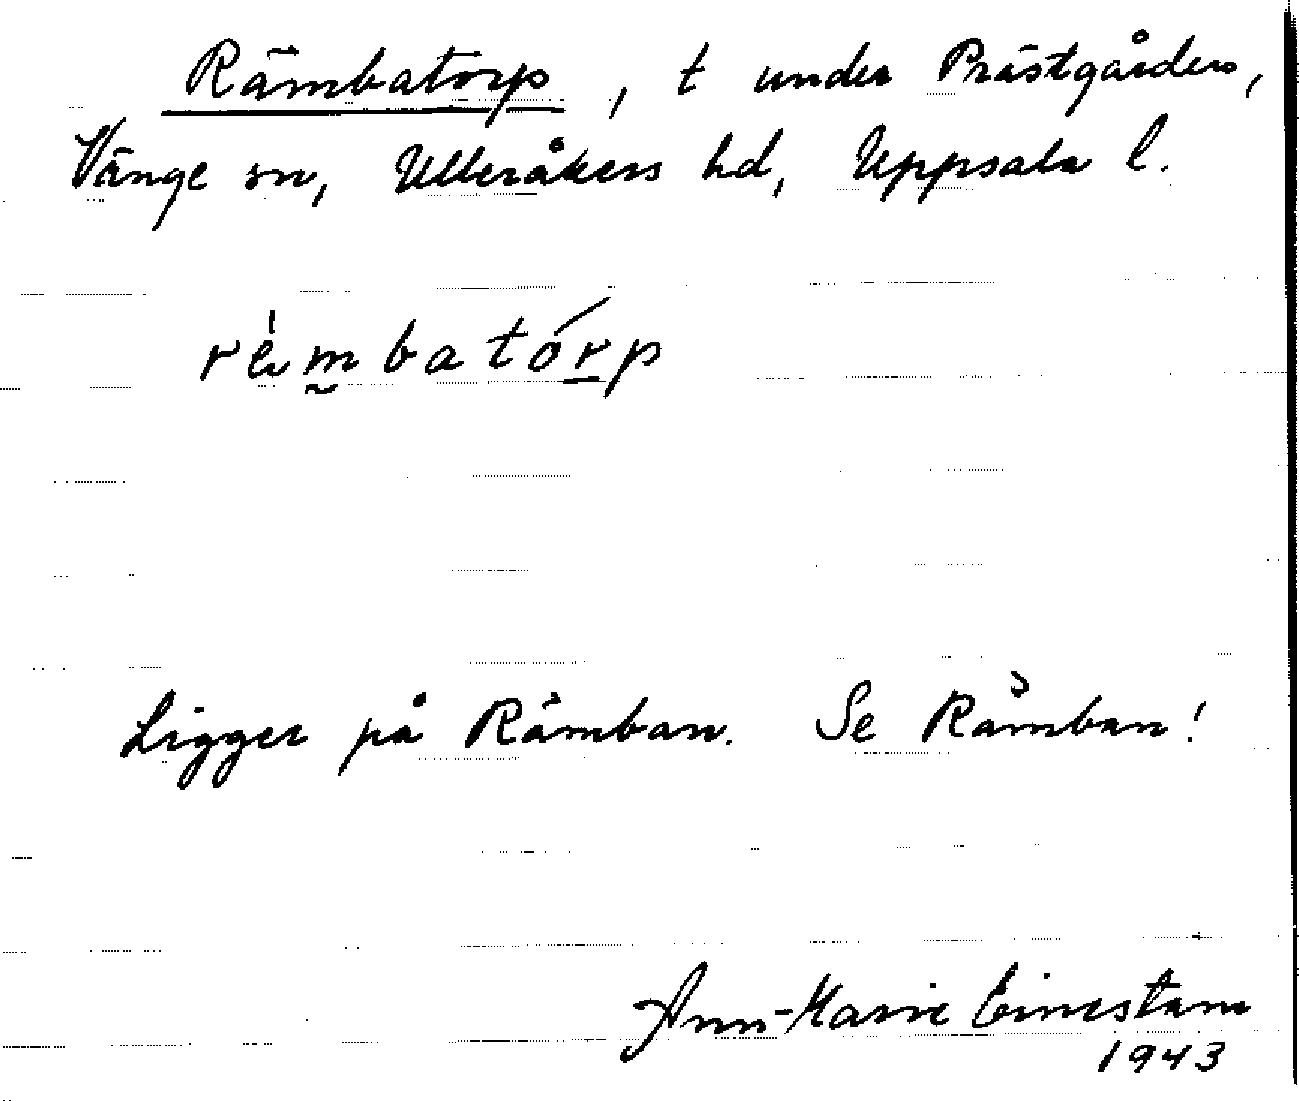 Rämbatorp, t under Prästgården,
Vänge sn, Ulleråkers hd, Uppsala l.
rèmbatórp
Ligger på Rämban. Se Råmban!
Ann-Marie Einestam
1943